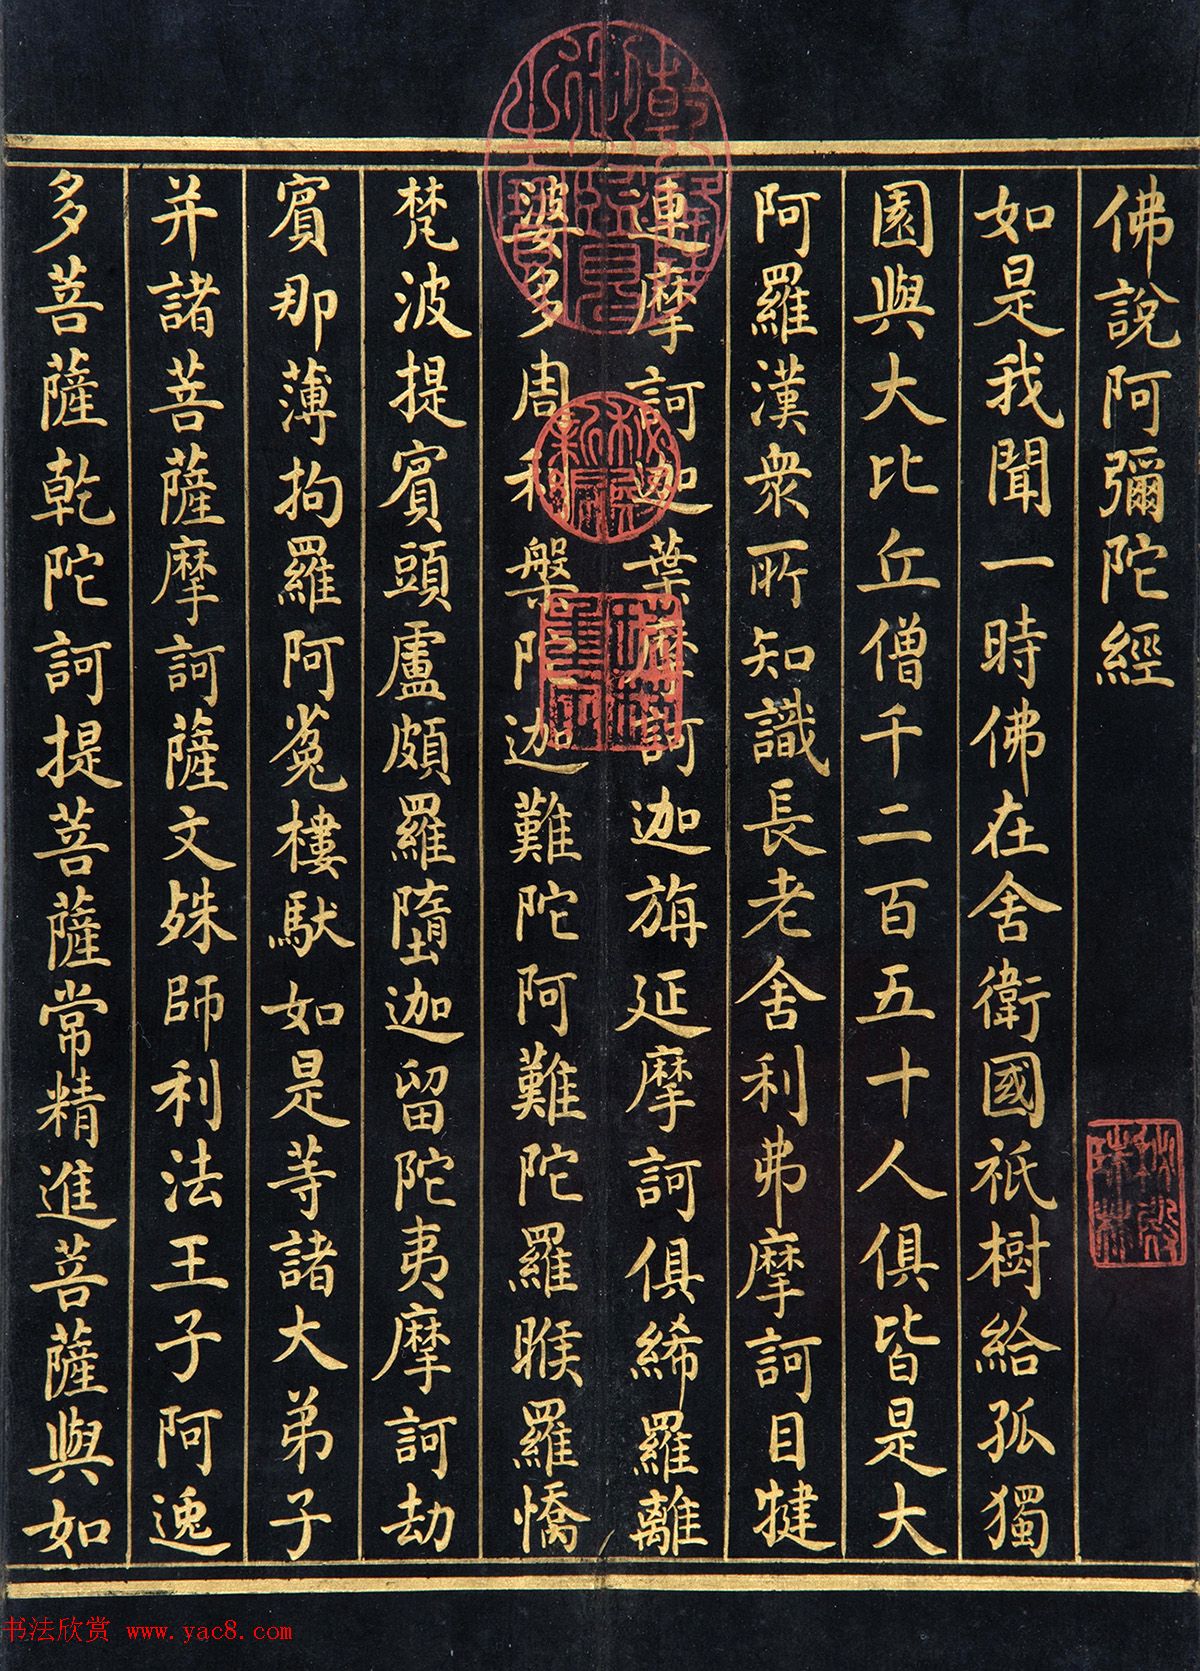 佛說阿彌陀經
如是我聞一時佛在舍衛國祇樹給孤獨
園與大比丘僧千二百五十人俱皆是大
阿羅漢衆所知識長老舍利弗摩訶目犍
連摩訶迦葉摩訶迦旃延摩訶俱絺羅離
婆多周利槃陀迦難陀阿難陀羅睺羅憍
梵波提賓頭盧頗羅墮迦留陀夷摩訶劫
賓那薄拘羅阿㝹樓馱如是等諸大弟子
并諸菩薩摩訶薩文殊師利法王子阿逸
多菩薩乾陀訶提菩薩常精進菩薩與如
乾隆御覽之寶
秘殿新編
珠林重定
秘殿珠林
书法欣赏 www.yac8.com